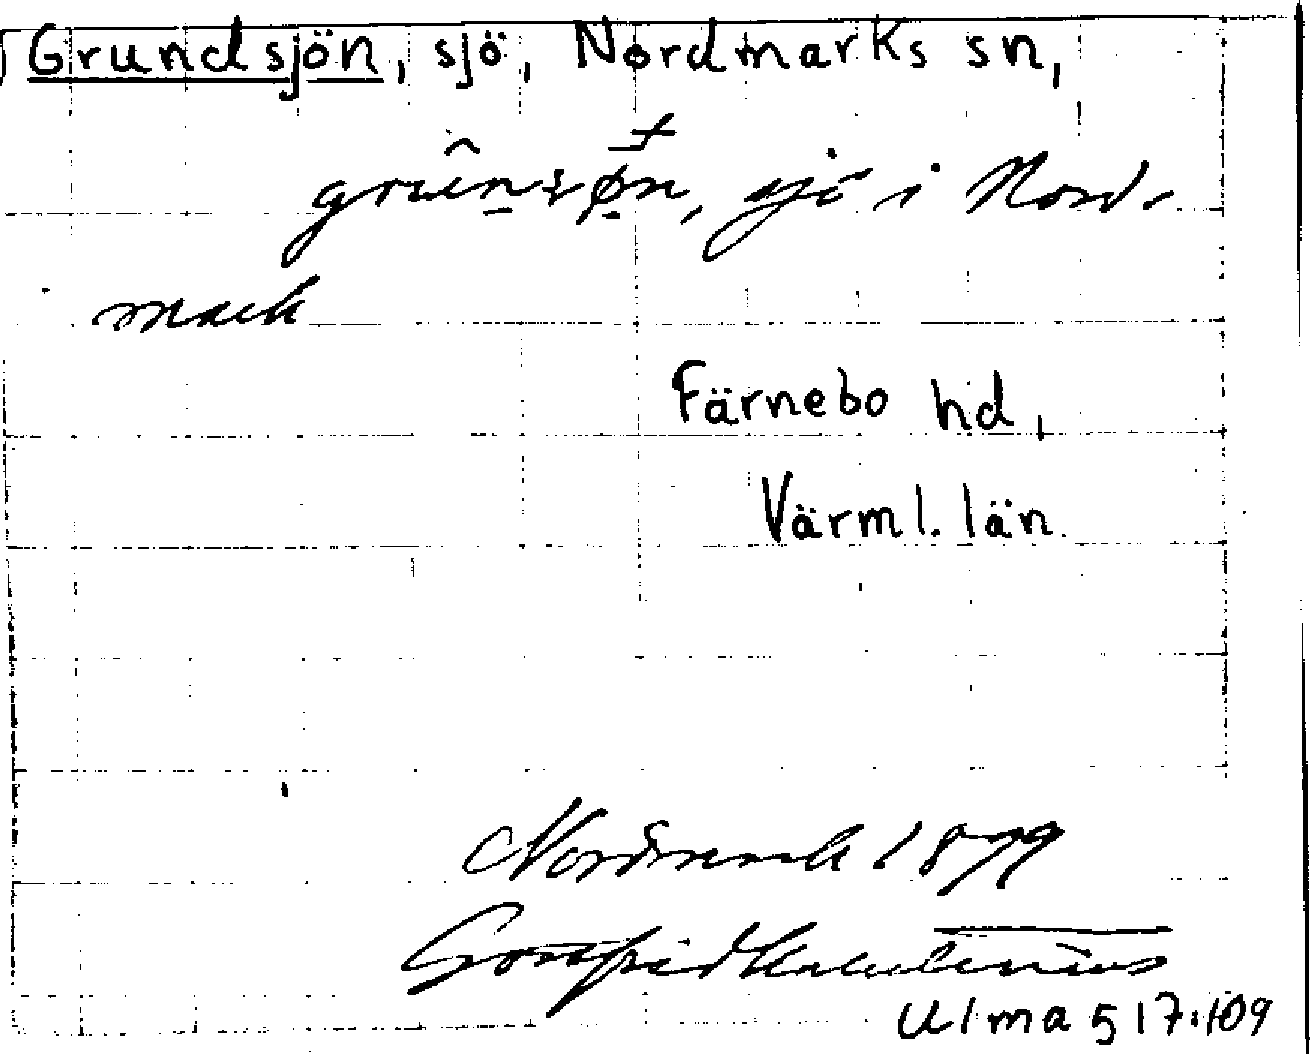 Grundsjön, sjö, Nordmarks sn,
sjö i Nord-
mark
Färnebo hd,
Värml. län.
Nordmark 1879
Gottfrid Kallstenius
Ulma 517:109